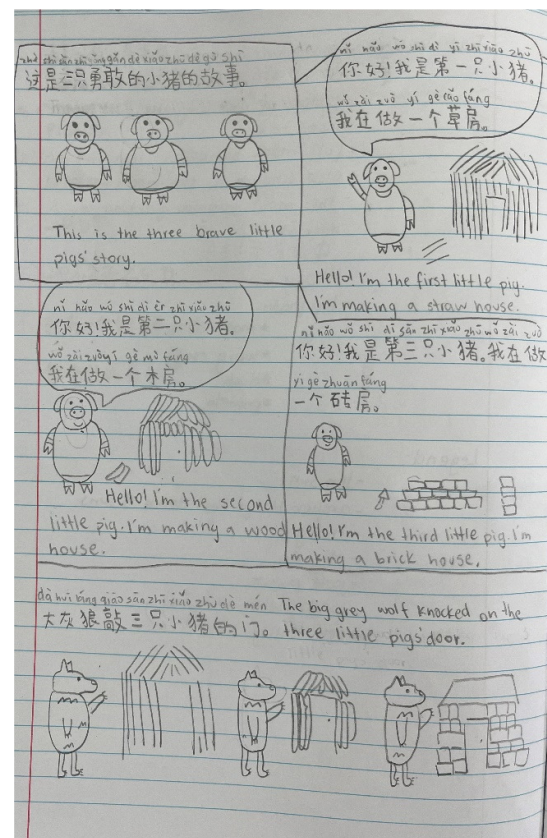 zhè shì sān zhī yǒng gǎn dē xiǎo zhū dē gù shì
这是三只勇敢的小猪的故事。
This is the three brave little
pigs' story.
nǐ hǎo wǒ shì dì yī zhī xiǎo zhū
你好!我是第一只小猪。
wǒ zài zuò yí gè cǎo fáng
我在做一个草房。
Hello! I'm the first little pig.
I'm making a straw house.
nǐ hǎo wǒ shì dì èr zhī xiǎo zhū
你好!我是第二只小猪。
wǒ zài zuò yí gè mù fáng
我在做一个木房。
Hello! I'm the second
little pig. I'm making a wood
house.
nǐ hǎo wǒ shì dì sān zhī xiǎo zhū wǒ zài zuò
你好!我是第三只小猪。我在做
yí gè zhuān fáng
一个砖房。
Hello! I'm the third little pig. I'm
making a brick house.
dà huī láng qiāo sān zhī xiǎo zhū dē mén
大灰狼敲三只小猪的门。
The big grey wolf knocked on the
three little pigs' door.